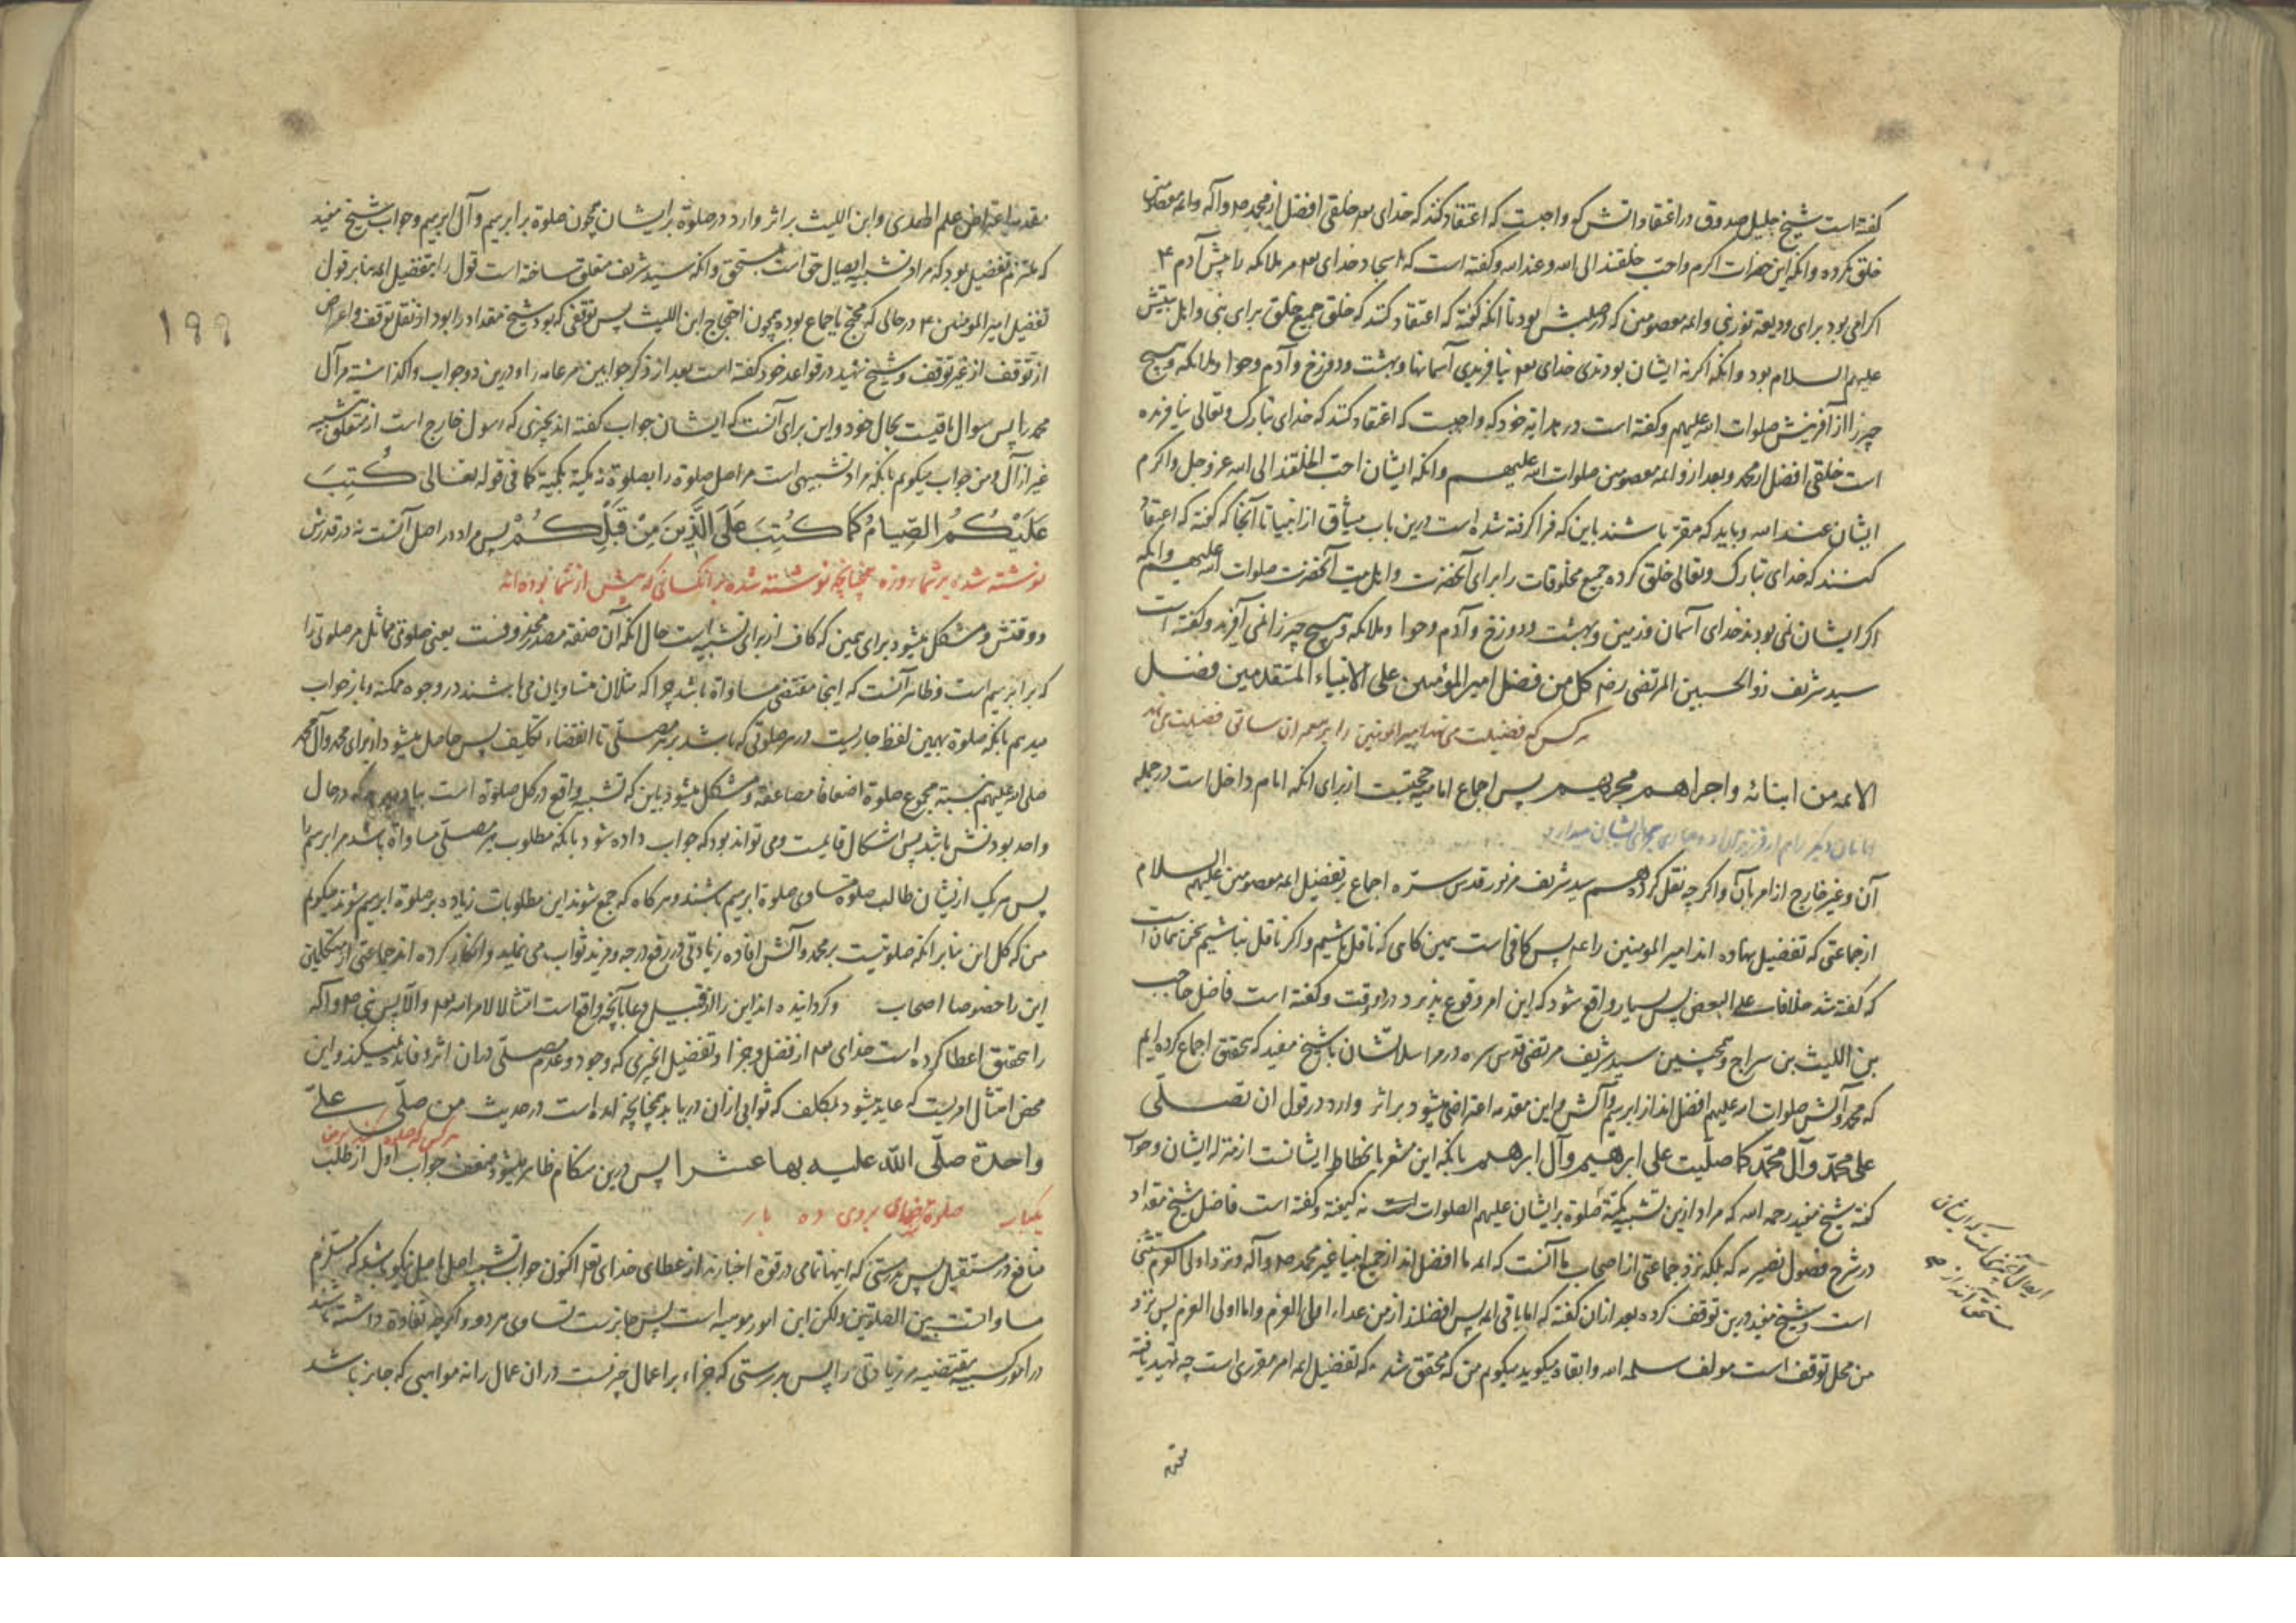 کفته است شیخ جلیل صدوق در اعتقاداتش که واجبست که اعتقاد کند که خدای خلقی افضل از محمد و آله و ائمه معصومین
خلق نکرده و آنکه این حضرات اکرم و احب خلقند الی الله و عند الله و کفته است که خدای مر ملائکه را پیش آدم
اکرامی بود برای ودیعه نور نبی و ائمه معصومین که در صلبش بود تا آنکه کفته که اعتقاد کند که خلق جمیع خلق برای نبی و اهل بیتش
علیهم السلام بود و آنکه اکر نه ایشان بودندی خدای نیافریدی آسمانها و بهشت و دوزخ و آدم و حوا و ملائکه و هیچ
چیز را از آفرینش صلوات الله علیهم و کفته است در هدایه خود که واجبست که اعتقاد کند که خدای تبارک و تعالی نیافریده
است خلقی افضل از محمد و بعد از و ائمه معصومین صلوات الله علیهم و آنکه ایشان احب الخلقند الی الله عز و جل و اکرم
ایشان عند الله و باید که مقر باشند باین که فرا کرفته شده است درین باب میثاق از انبیا تا آنجا که کفته که اعتقاد
کنند که خدای تبارک و تعالی خلق کرده جمیع مخلوقات را برای آنحضرت و اهل بیت آنحضرت صلوات الله علیهم و آنکه
اکر ایشان نمی بودند خدای آسمان و زمین و بهشت و دوزخ و آدم و حوا و ملائکه و هیچ چیز را نمی آفرید و کفته است
سید شریف ذو الحسبین المرتضی رض کل من فضل امیر المؤمنین علی الانبیاء المتقدمین فضل
هر کس که فضیلت می نهد امیر المؤمنین را بر فضیلت می نهد
الائمه من ابنائه و اجراهم مجریهم پس اجماع امامیه حجتست از برای آنکه امام داخل است در جمله
امامان دیکر را
آن و غیر خارج از امر بآن و اکر چه نقل کرده هم سید شریف مزبور قدس سره اجماع بر تفضیل ائمه معصومین علیهم السلام
از جماعتی که تفضیل نهاده اند امیر المومنین را پس کافی است همین کاهی که ناقل باشیم و اکر ناقل نباشیم سخن همان است
که کفته شد خلافات علی البعض پس بسیار واقع شود که این امر وقوع پذیرد در وقت و کفته است فاضل صاحب
بن اللیث بن سراج و همچنین سید شریف مرتضی قدس سره در مراسلاتشان با شیخ مفید که تحقق اجماع کرده ایم
که محمد و آلش صلوات الله علیهم افضل اند از ابرهیم و آلش و این مقدمه اعتراض میشود بر اثر وارد در قول ان تصلی
علی محمد و آل محمد کما صلیت علی ابرهیم و آل ابرهیم بانکه این مشعر بانحطاط ایشانست از منزله ایشان و جواب
کفته شیخ مفید رحمه الله که مراد ازین تشبیه کمیّة صلوة بر ایشان علیهم الصلوات است نه کیفیة و کفته است فاضل شیخ مقداد
در شرح فصول نصیریه که بلکه نزد جماعتی از اصحاب ما آنست که ائمه ما افضل اند از جمیع انبیا غیر محمد و آله و نزد اولی العزم مستثنی
است و شیخ مفید درین توقف کرده بعد از ان کفته که اما باقی ائمه پس افضلند از من عداء اولی العزم و اما اولی العزم پس نزد
من محل توقف است مولف سلمه الله و ابقاه میکوید میکویم من که محقق شد که تفضیل ائمه امر مقرری است چه تمهید یافته
مقدمه
مقدمه اعتراض علم الهدی و ابن اللیث بر اثر وارد در صلوة بر ایشان همچون صلوة بر ابرهیم و آل ابرهیم و جواب شیخ مفید
که ملتزم تفضیل بود که مراد تشبیه ایصال حق است بمستحق و آنکه سید شریف معلق ساخته است قول را بتفضیل ائمه بنابر قول
تفضیل امیر المومنین در حالی که محتج باجماع بوده همچون احتجاج ابن اللیث پس توقفی که بود شیخ مقداد را بود از نقل توقف و اعراض
از توقف از غیر توقف و شیخ شهید در قواعد خود کفته است بعد از ذکر جوابین مر عامه را و درین دو جواب واکذاشته مر آل
محمد را پس سوال باقیست بحال خود و این برای آنست که ایشان جواب کفته اند بچیزی که رسول خارج است از متعلق تشبیه
غیر از آل و من جواب میکویم بانکه مراد تشبیهی است مر اصل صلوة را بصلوة نه کمیة بکمیة کما فی قوله تعالی کُتِبَ
عَلَیْکُمُ الصِّیَامُ کَمَا کُتِبَ عَلَی الَّذِینَ مِنْ قَبْلِکُمْ پس مراد در اصل آنست نه در قدرش
نوشته شده بر شما روزه همچنانچه نوشته شده بر آنکسانی که پیش از شما بوده اند
و وقتش و مشکل میشود برای همین که کاف از برای تشبیه است حال آنکه آن صفة مصدر محذوفست یعنی صلوتی مماثل مر صلوتی را
که بر ابرهیم است و ظاهر آنست که اینجا مقتضی مساواة باشد چرا که مثلان متساویان می باشند در وجوه ممکنه و باز جواب
میدهم بانکه صلوة بهمین لفظ جاریست در هر صلوتی که باشد بر هر مصلی تا انقضاء تکلیف پس حاصل میشود از برای محمد و آل محمد
صلی الله علیهم نسبة مجموع صلوة اضعافا مضاعفه و مشکل میشود باین که تشبیه واقع در کل صلوة است در حال
واحد بودنش باشد پس اشکال قایمست و می تواند بود که جواب داده شود بانکه مطلوب هر مصلی مساواة باشد مر ابرهیم را
پس هر یک ازیشان طالب صلوة مساوی صلوة ابرهیم باشند و هر کاه که جمع شوند این مطلوبات زیاده بر صلوة ابرهیم شوند میکویم
من که کل این بنابر آنکه صلوتیست بر محمد و آلش افاده زیادتی در رفع درجه و مزید ثواب می نماید و انکار کرده اند جماعتی از متکلمین
این را خصوصا اصحاب و کردانیده اند این را از قبیل دعا بآنچه واقع است امتثالا لامر الله و الا پس نبی و آله
را بتحقیق اعطا کرده است خدای از فضل و جزا و تفضیل آنچیزی که وجود و عدم مصلی در ان اثر و فایده نمیکند و این
محض امتثال امریست که عاید میشود بمکلف که ثوابی از ان دریابد همچنانچه آمده است در حدیث من صلّی علیّ
هر کس که صلوة
واحدة صلّی الله علیه بها عشرا پس درین هنکام ظاهر میشود ضعف جواب اول از طلب
یکبار صلوة خدای بر وی ده بار
منافع در مستقبل پس بدرستی که اینها تمامی در قوة اخبارند از عطای خدای تعالی اکنون جواب تشبیه اصل باصل نیکو باشد که مستلزم
مساواتست بین الصلوتین ولکن این امور موهبیه است پس جایزست تساوی هر دو و اکر چه تفاوة داشته باشند
در امور کسبیه مقتضیه مر زیادتی را پس بدرستی که جزاء بر اعمال چیزیست در ان عمال را نه مواهبی که جایز باشد
۱۹۹